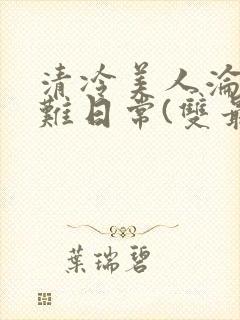 清冷美人淪
難日常(雙
葉瑞碧